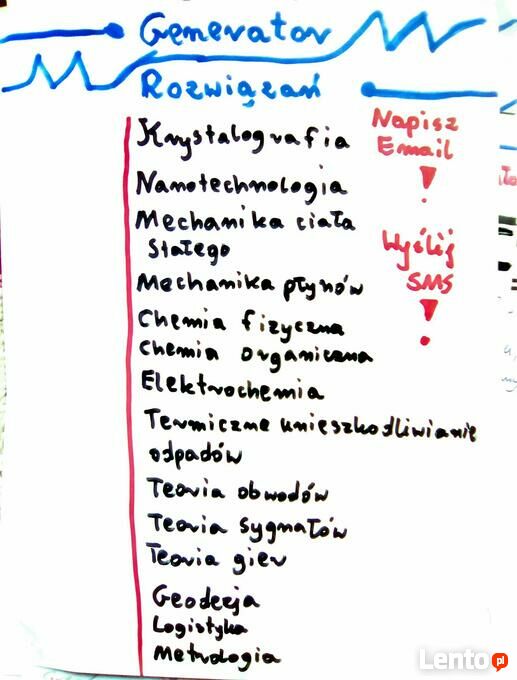 Generator
Rozwiązań
Krystalografia
Napisz
Email
!
Nanotechnologia
Mechanika ciała
stałego
Wyślij
SMS
!
Mechanika płynów
Chemia fizyczna
Chemia organiczna
Elektrochemia
Termiczne unieszkodliwianie
odpadów
Teoria obwodów
Teoria sygnałów
Teoria gier
Geodezja
Logistyka
Metrologia
Lento.pl